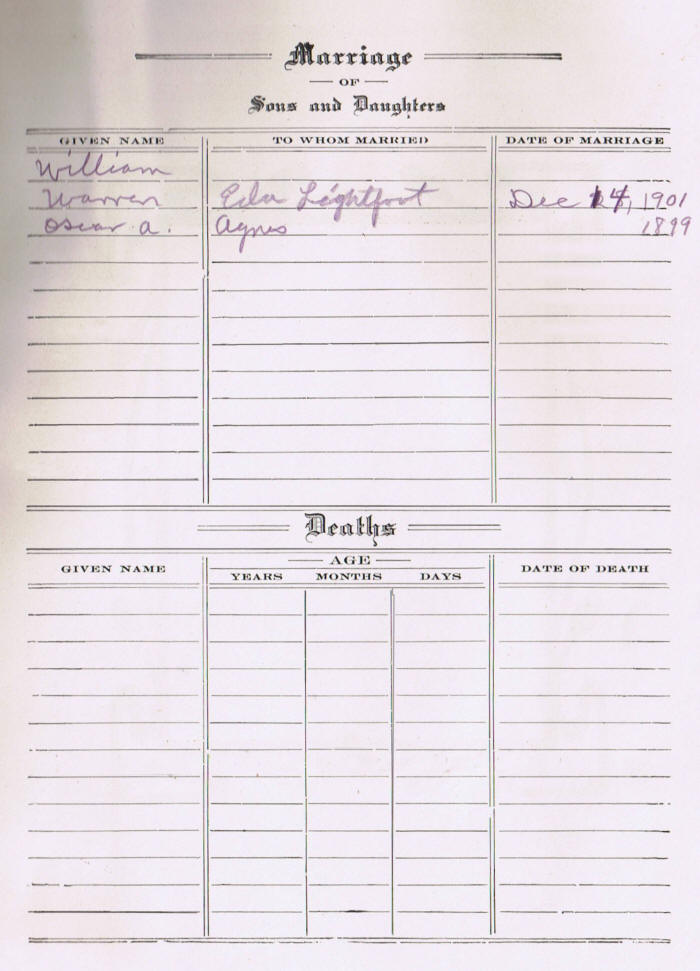 Marriage
OF
Sons and Daughters
GIVEN NAME TO WHOM MARRIED DATE OF MARRIAGE
William
Warren Eda Lightfoot Dec 14, 1901
Oscar A. Agnes 1899
Deaths
GIVEN NAME AGE DATE OF DEATH
YEARS MONTHS DAYS